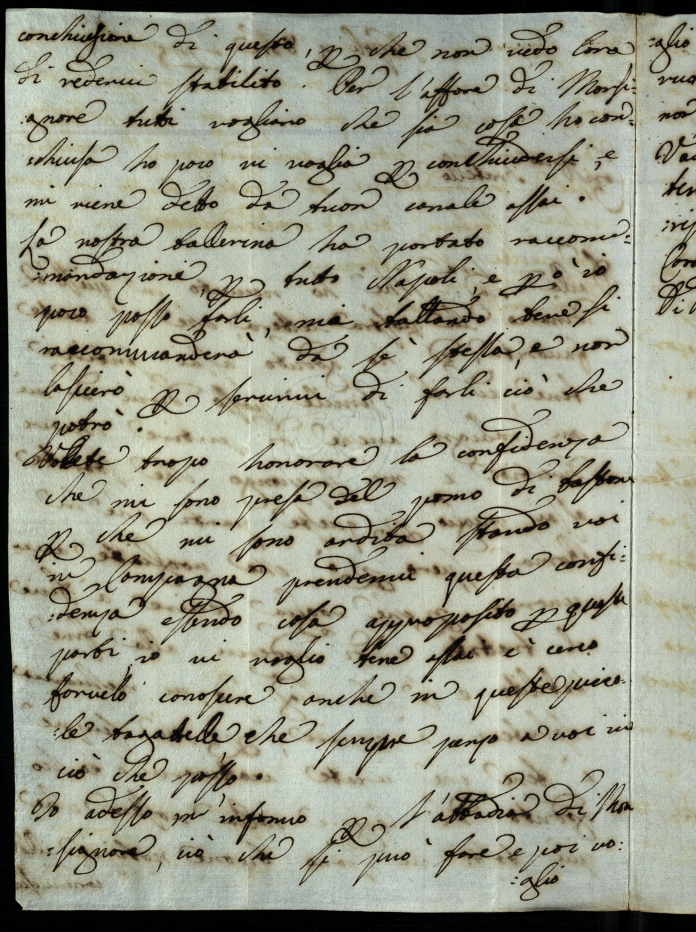 conchiusione di questo, p che non vedo l'ora
di vederui stabilito. Per l'affare di Monsi=
gnore tutti vogliano che sia cosa ho con=
chiusa ho poco ui voglia p conchiudersi, e
mi viene detto da buon canale assai.
La nostra ballerina ha portato raccom=
=mandazione, p tutto Napoli, e p ciò io
poco posso farli, ma ballando bene si
raccommanderà da sè stessa, e non
lascierò p seruirui di farli ciò che
potrò.
Volete tropo honorare la confidenza
che mi sono presa del pomo di bastone
p che mi sono ardita stando voi
in Campagna prendermi questa confi=
=denza essendo cosa approposito p questi
parti, io ui voglio bene assai e cerco
faruelo conoscere anche in queste picio=
=le bagatelle che sempre penso a voi in
ciò che posso.
Io adesso m'informo p l'abbadia di Mon
=signore, ciò che si può fare e poi vo=
=glio
=glio
non